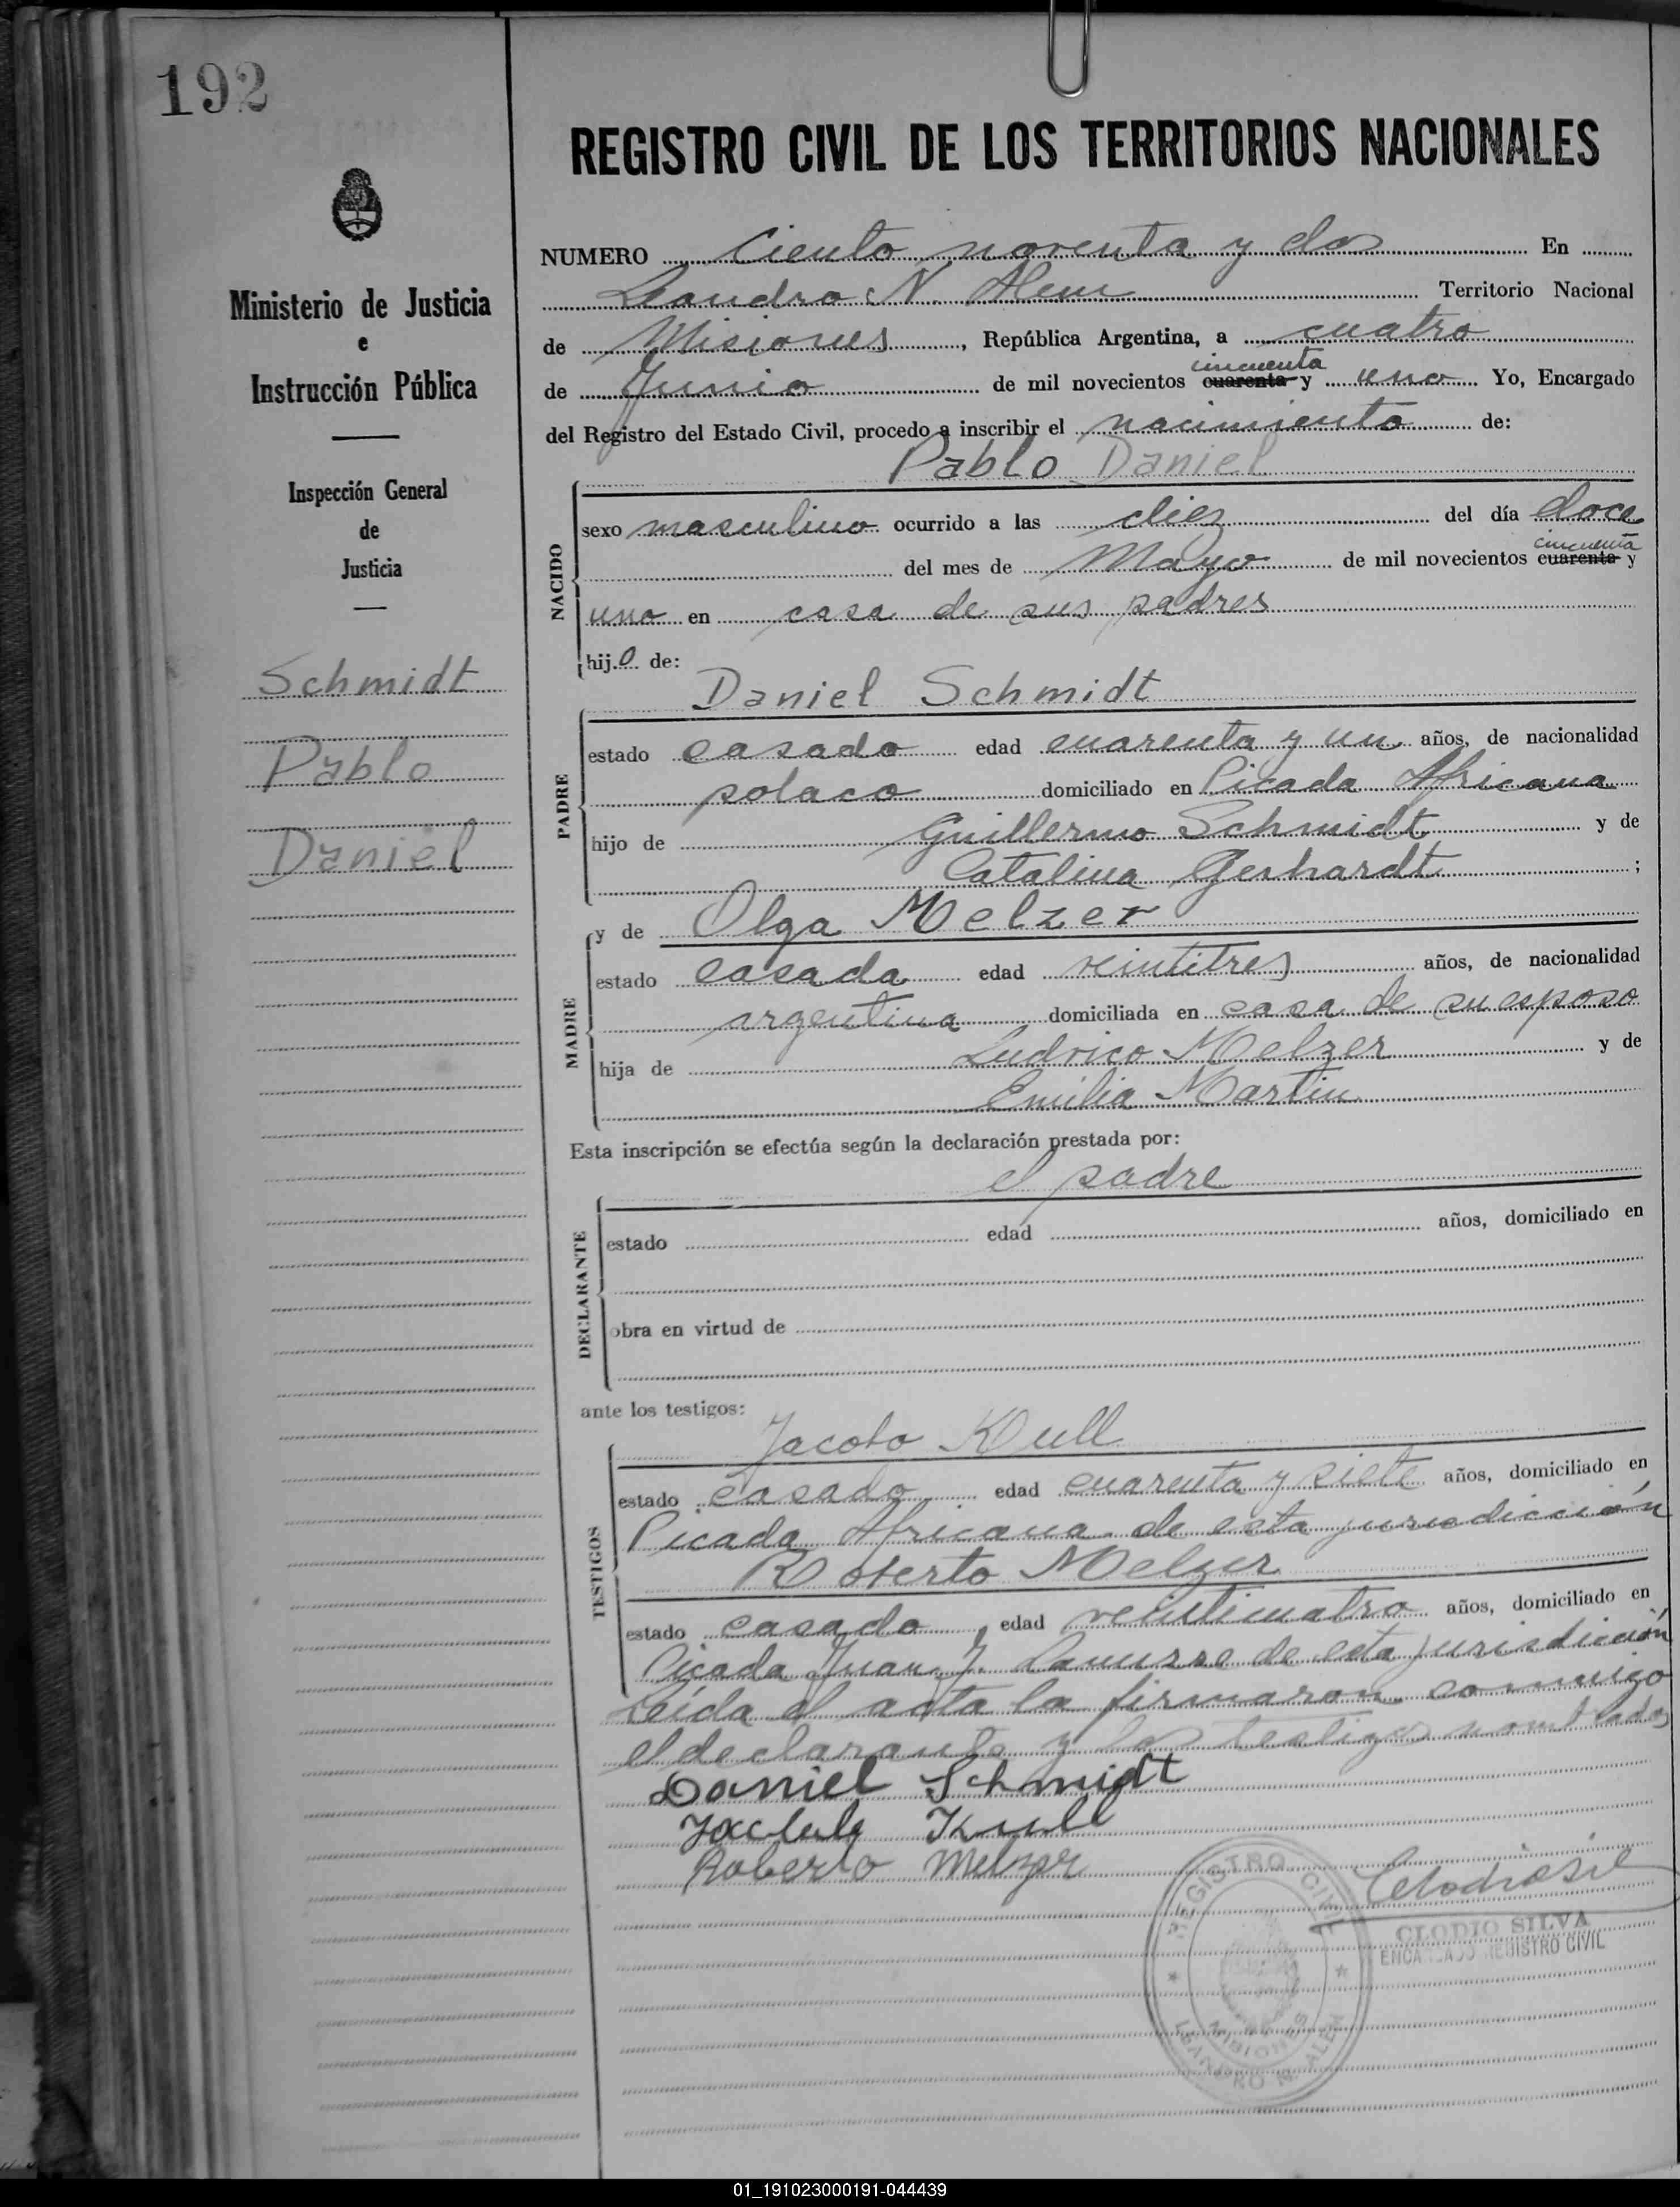 192
REGISTRO CIVIL DE LOS TERRITORIOS NACIONALES
Ministerio de Justicia
e
Instrucción Pública
Inspección General
de
Justicia
Schmidt
Pablo
Daniel
NUMERO Ciento noventa y dos En
Leandro N. Alem Territorio Nacional
de Misiones, República Argentina, a cuatro
cincuenta
de Junio de mil novecientos cuarenta y uno Yo, Encargado
del Registro del Estado Civil, procedo a inscribir el nacimiento de:
Pablo Daniel
NACIDO
sexo masculino ocurrido a las diez del día doce
cincuenta
del mes de Mayo de mil novecientos cuarenta y
uno en casa de sus padres
hijo de:
Daniel Schmidt
PADRE
estado casado edad cuarenta y un años, de nacionalidad
polaco domiciliado en Picada Africana
hijo de Guillermo Schmidt y de
Catalina Gerhardt ;
y de Olga Melzer
MADRE
estado casada edad veintitres años, de nacionalidad
argentina domiciliada en casa de su esposo
hija de Ludovico Melzer y de
Emilia Martin
Esta inscripción se efectúa según la declaración prestada por:
el padre
DECLARANTE
estado edad años, domiciliado en
obra en virtud de
ante los testigos:
Jacobo Kull
TESTIGOS
estado casado edad cuarenta y siete años, domiciliado en
Picada Africana de esta jurisdicción
Roberto Melzer
estado casado, edad veinticuatro años, domiciliado en
Picada Juan J. de esta jurisdicción
Leída el acta la firmaron conmigo
el declarante y los testigos nombrados
Daniel Schmidt
Kull
Roberto Melzer
REGISTRO CIVIL
MISIONES
LEANDRO N. ALEM
CLODIO SILVA
ENCARGADO REGISTRO CIVIL
01_191023000191-044439